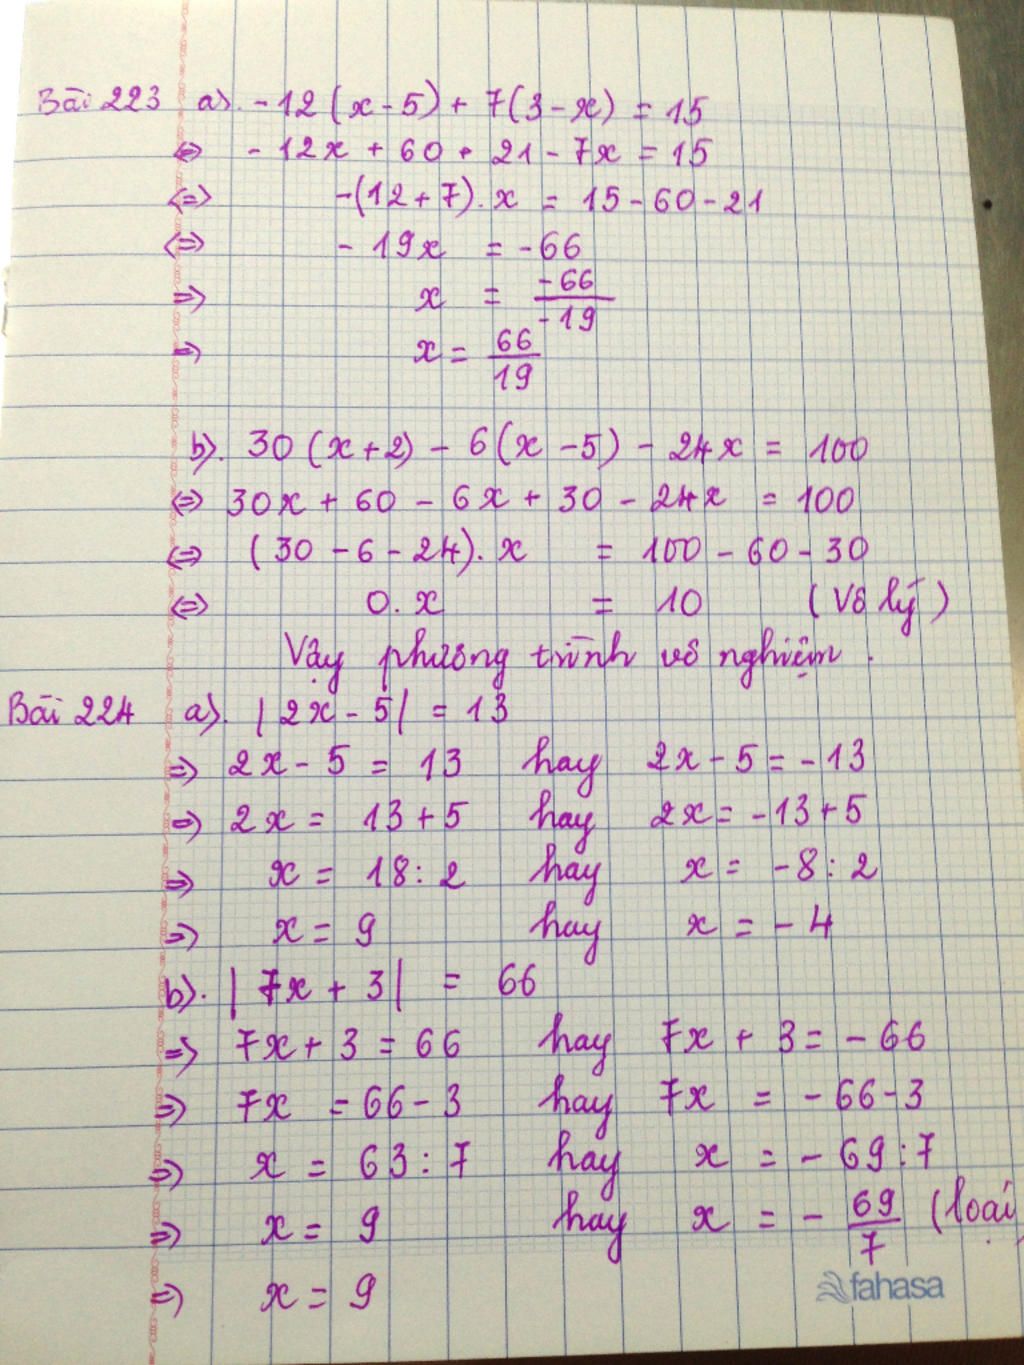 Bài 223 a). -12(x-5) + 7(3-x) = 15
<=> -12x + 60 + 21 - 7x = 15
<=> -(12+7).x = 15-60-21
<=> -19x = -66
=> x = \frac{-66}{-19}
=> x = \frac{66}{19}
b). 30(x+2) - 6(x-5) - 24x = 100
<=> 30x + 60 - 6x + 30 - 24x = 100
<=> (30-6-24).x = 100-60-30
<=> 0.x = 10 (Vô lý)
Vậy phương trình vô nghiệm.
Bài 224 a). |2x-5| = 13
=> 2x-5 = 13 hay 2x-5 = -13
=> 2x = 13+5 hay 2x = -13+5
=> x = 18:2 hay x = -8:2
=> x = 9 hay x = -4
b). |7x+3| = 66
=> 7x+3 = 66 hay 7x+3 = -66
=> 7x = 66-3 hay 7x = -66-3
=> x = 63:7 hay x = -69:7
=> x = 9 hay x = -\frac{69}{7} (loại
=> x = 9
fahasa